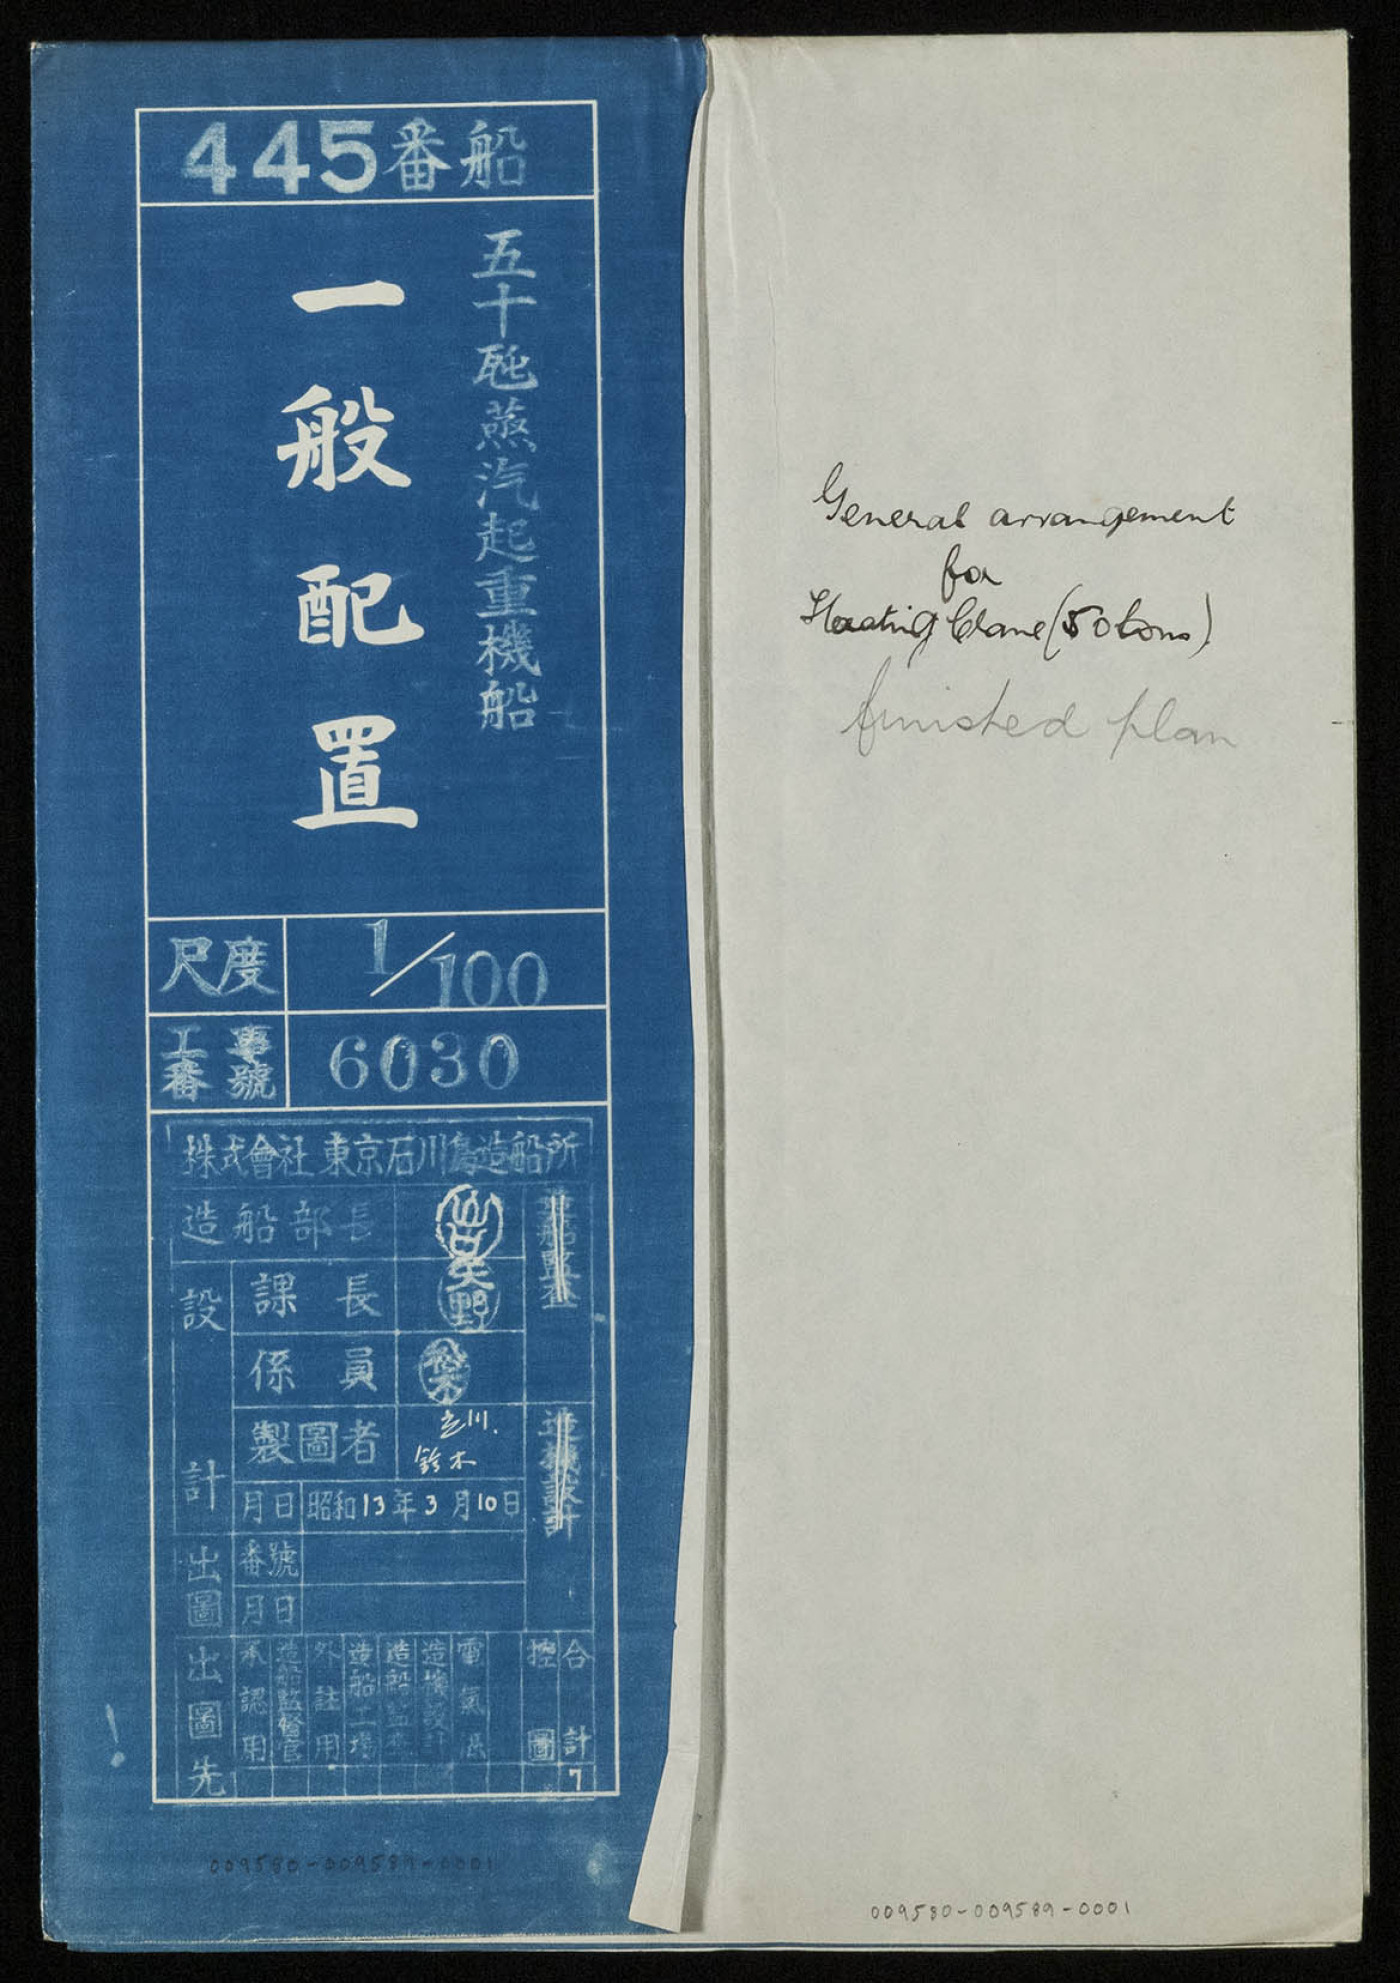 445番船
五十瓲蒸汽起重機船
一般配置
尺度 1/100
工事番號 6030
株式會社 東京石川島造船所
造船部長
設計
課長
係員
製圖者 立川. 鈴木
月日 昭和13年3月10日
造船監査
造機設計
出圖
番號
月日
出圖先
承認用
造船監督官
外註用
造船工場
造船監査
造機設計
電氣
控圖
合計
7
009580-009589-0001
General arrangement
for
Floating Crane (50 tons)
finished plan
009580-009589-0001